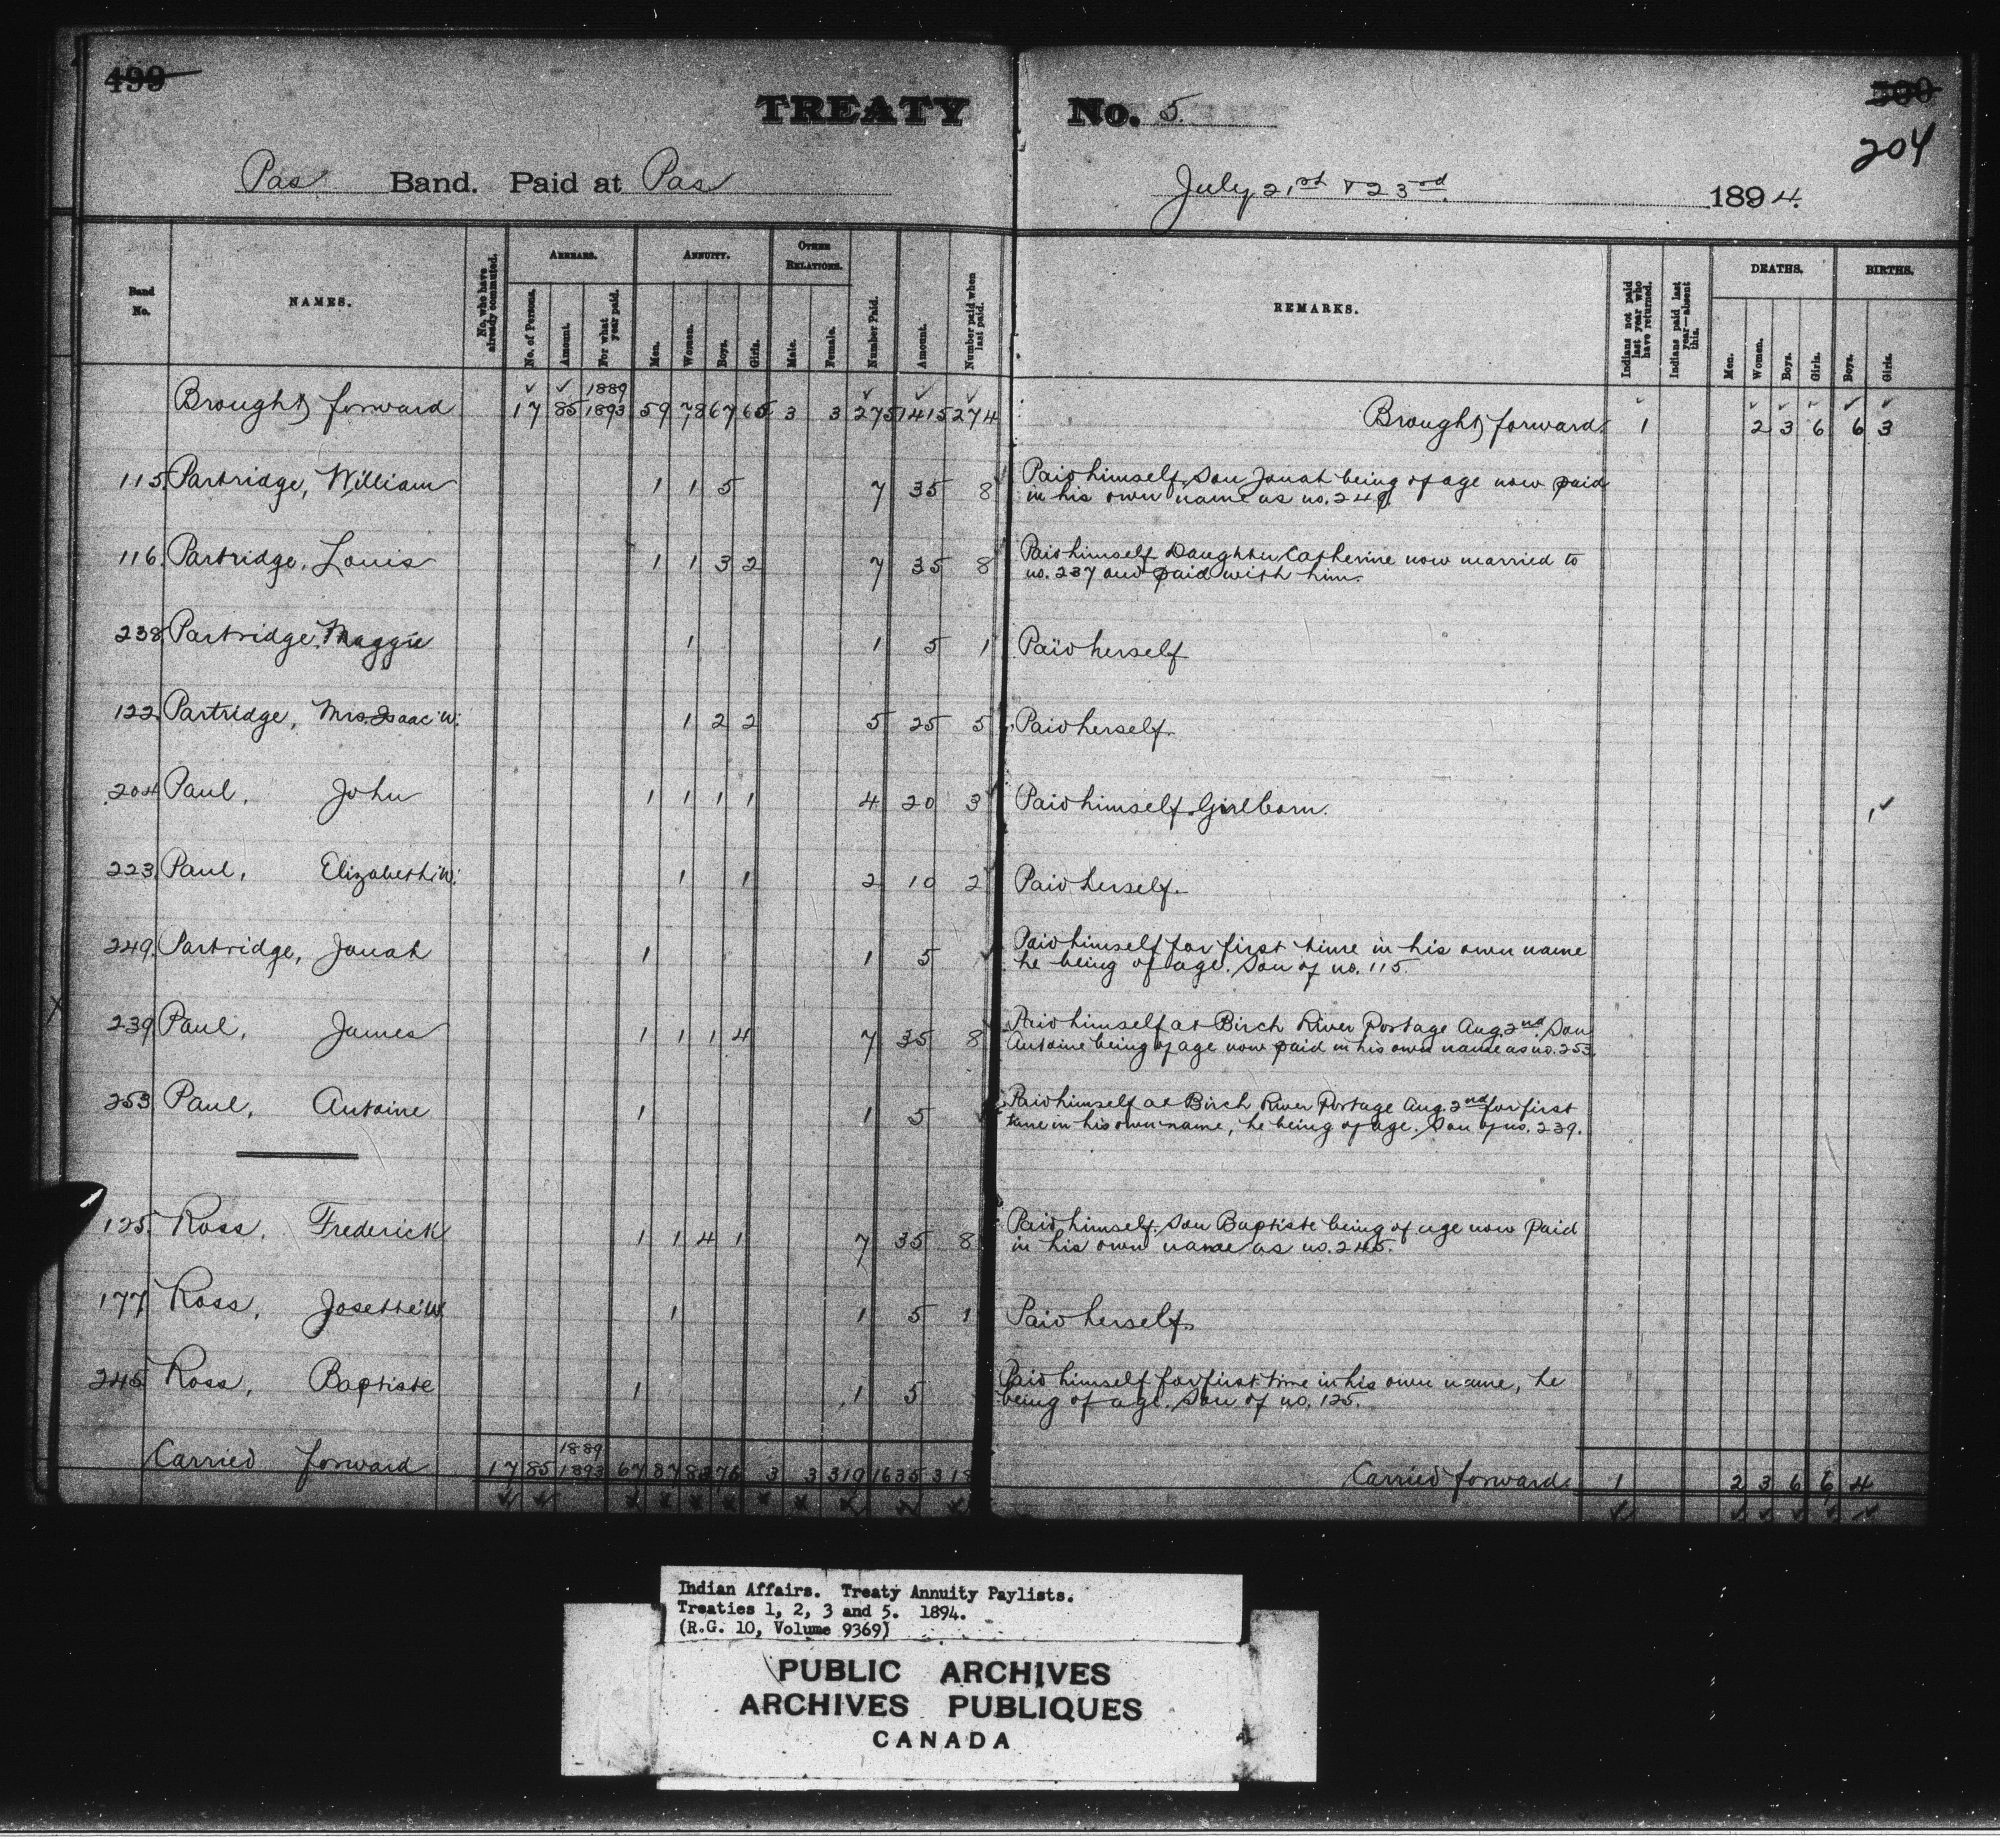 499
TREATY No. 5.
500
204
Pas Band. Paid at Pas July 21st & 23rd 1894.
Band No. NAMES. No. who have already commuted. ARREARS. No. of Persons. Amount. For what year paid. ANNUITY. Men. Women. Boys. Girls. OTHER RELATIONS. Male. Female. Number Paid. Amount. Number paid when last paid. REMARKS. Indians not paid last year who have returned. Indians paid last year—absent this. DEATHS. Men. Women. Boys. Girls. BIRTHS. Boys. Girls.
1889
Brought forward 17 85 1893 59 78 67 65 3 3 275 1415 274 Brought forward. 1 2 3 6 6 3
115. Partridge, William 1 1 5 7 35 8 Paid himself. Son Jonah being of age now paid
in his own name as no. 249.
116. Partridge, Louis 1 1 3 2 7 35 8 Paid himself. Daughter Catherine now married to
no. 237 and paid with him.
238. Partridge, Maggie 1 1 5 1 Paid herself
122. Partridge, Mrs. Isaac "W." 1 2 2 5 25 5 Paid herself.
204 Paul, John 1 1 1 1 4 20 3 Paid himself. Girl born. 1
223. Paul, Elizabeth "W." 1 1 2 10 2 Paid herself.
249. Partridge, Jonah 1 1 5 Paid himself for first time in his own name
he being of age. Son of no. 115.
239. Paul, James 1 1 1 4 7 35 8 Paid himself at Birch River Portage Aug. 2nd. Son
Antoine being of age now paid in his own name as no. 253.
253 Paul, Antoine 1 1 5 Paid himself at Birch River Portage Aug. 2nd for first
time in his own name, he being of age. Son of no. 239.
125. Ross, Frederick 1 1 4 1 7 35 8 Paid himself. Son Baptiste being of age now paid
in his own name as no. 245.
177 Ross, Josette "W" 1 1 5 1 Paid herself.
245 Ross, Baptiste 1 1 5 Paid himself for first time in his own name, he
being of age. Son of no. 125.
1889
Carried forward 17 85 1893 67 87 83 76 3 3 319 1635 318 Carried forward. 1 2 3 6 6 4
Indian Affairs. Treaty Annuity Paylists.
Treaties 1, 2, 3 and 5. 1894.
(R.G. 10, Volume 9369)
PUBLIC ARCHIVES
ARCHIVES PUBLIQUES
CANADA